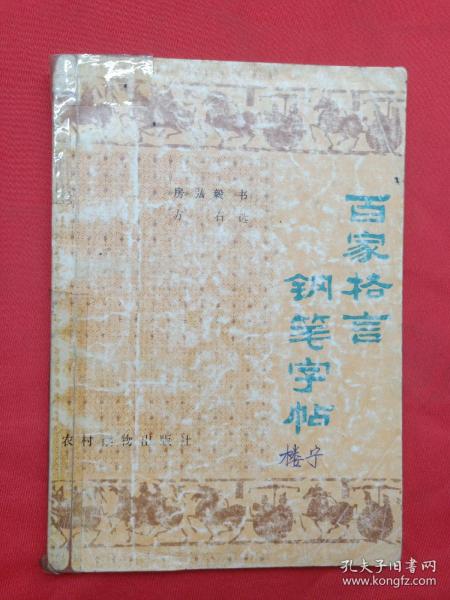 百家格言
钢笔字帖
房弘毅 书
方石 选
农村读物出版社
楼宇
孔夫子旧书网
www.kongfz.com